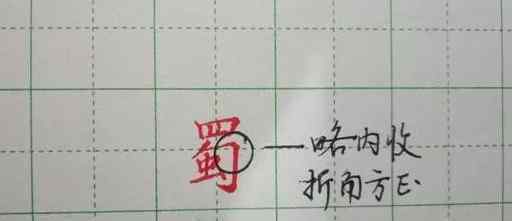 蜀
略内收
折角方正